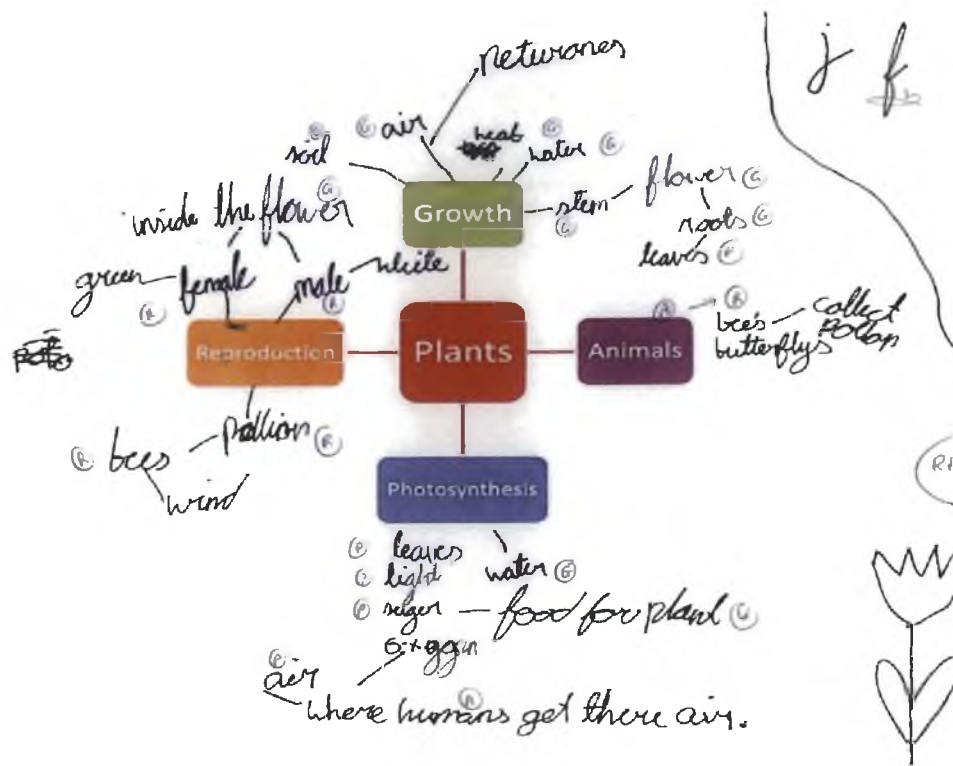 neturones
j f
air
heat
soil
water
Growth
stem
flower
roots
leaves
inside the flower
green
female
male
white
Reproduction
Plants
Animals
bees
butterflys
collect
pollan
pollion
bees
wind
Photosynthesis
leaves
light
water
food for plant
oxggn
air
where humans get there air.